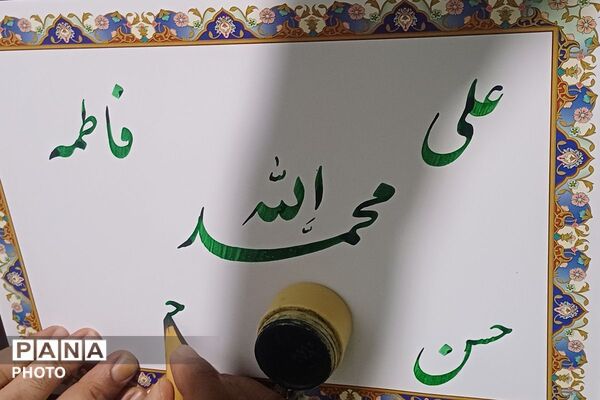 علی
فاطمه
الله
محمد
حسن
ح
PANA
PHOTO